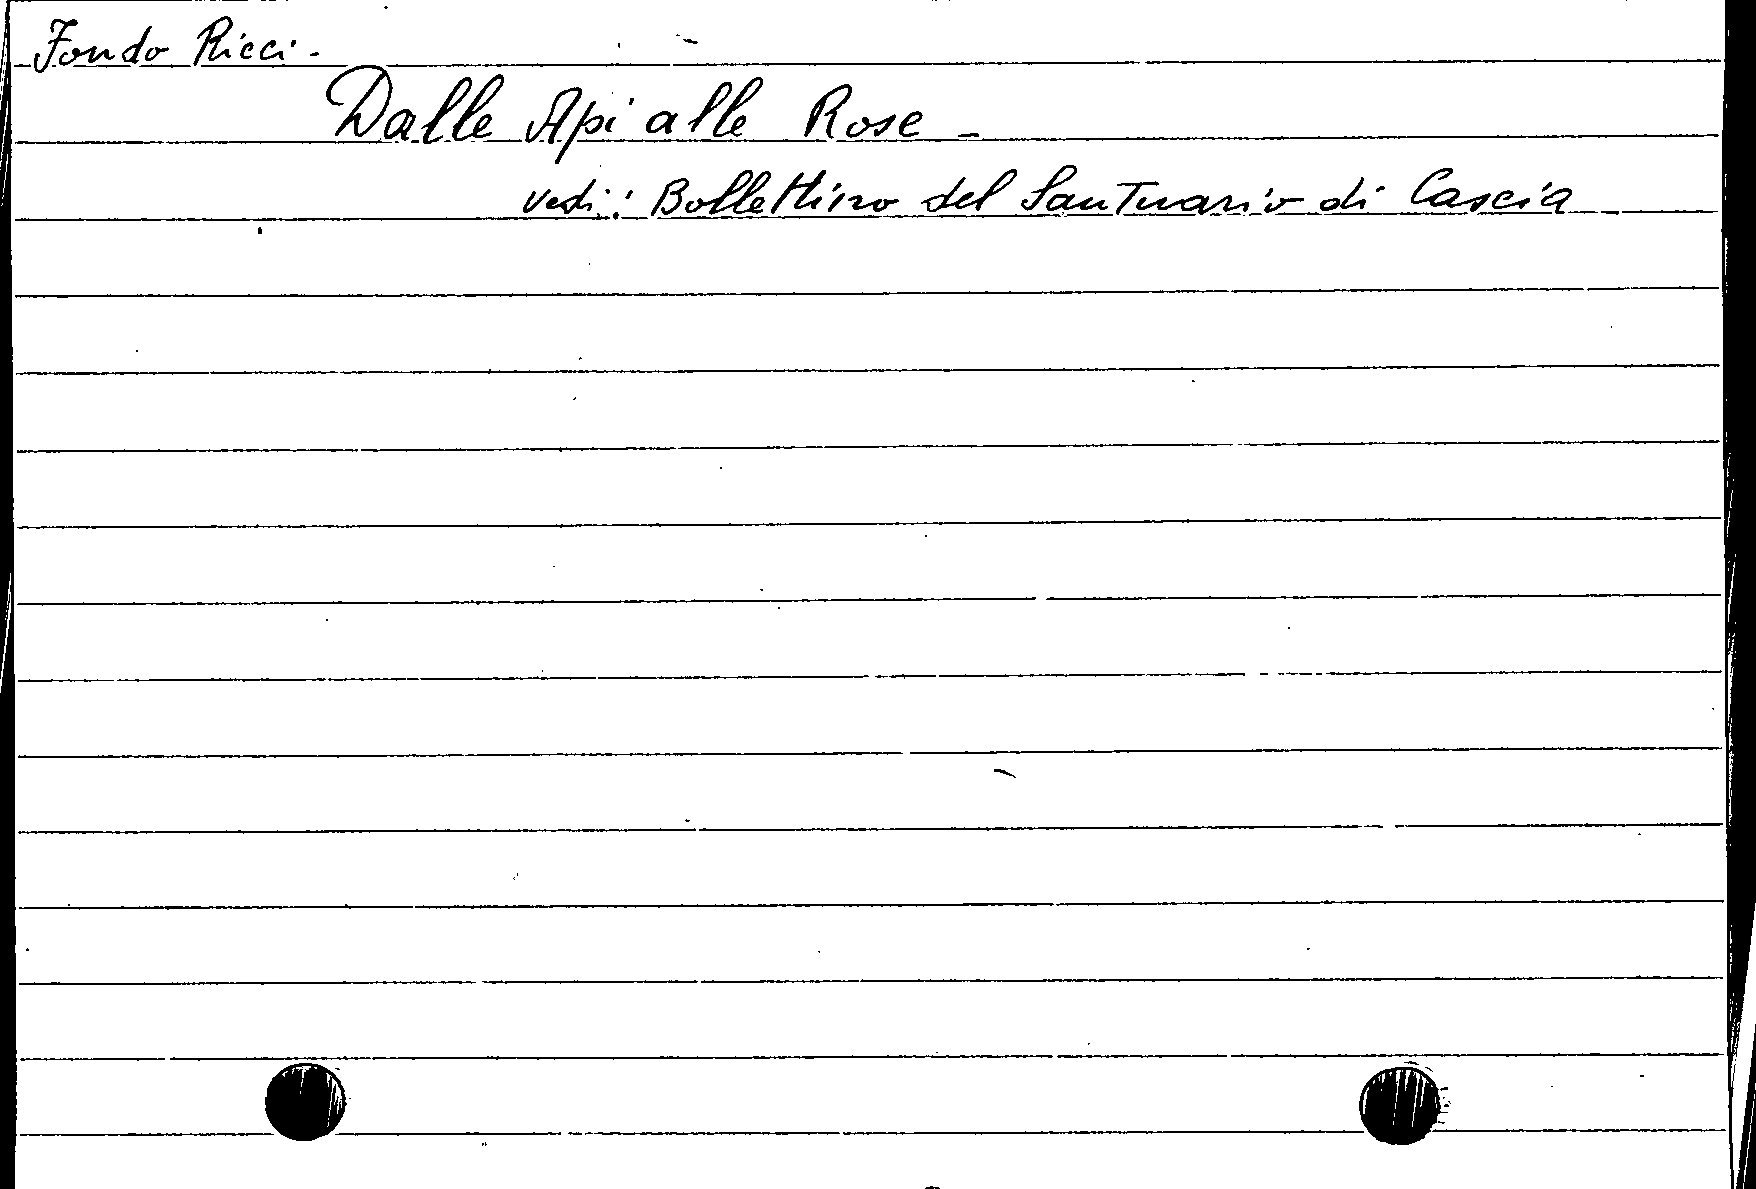 Fondo Ricci.
Dalle Api alle Rose -
vedi: Bollettino del Santuario di Cascia